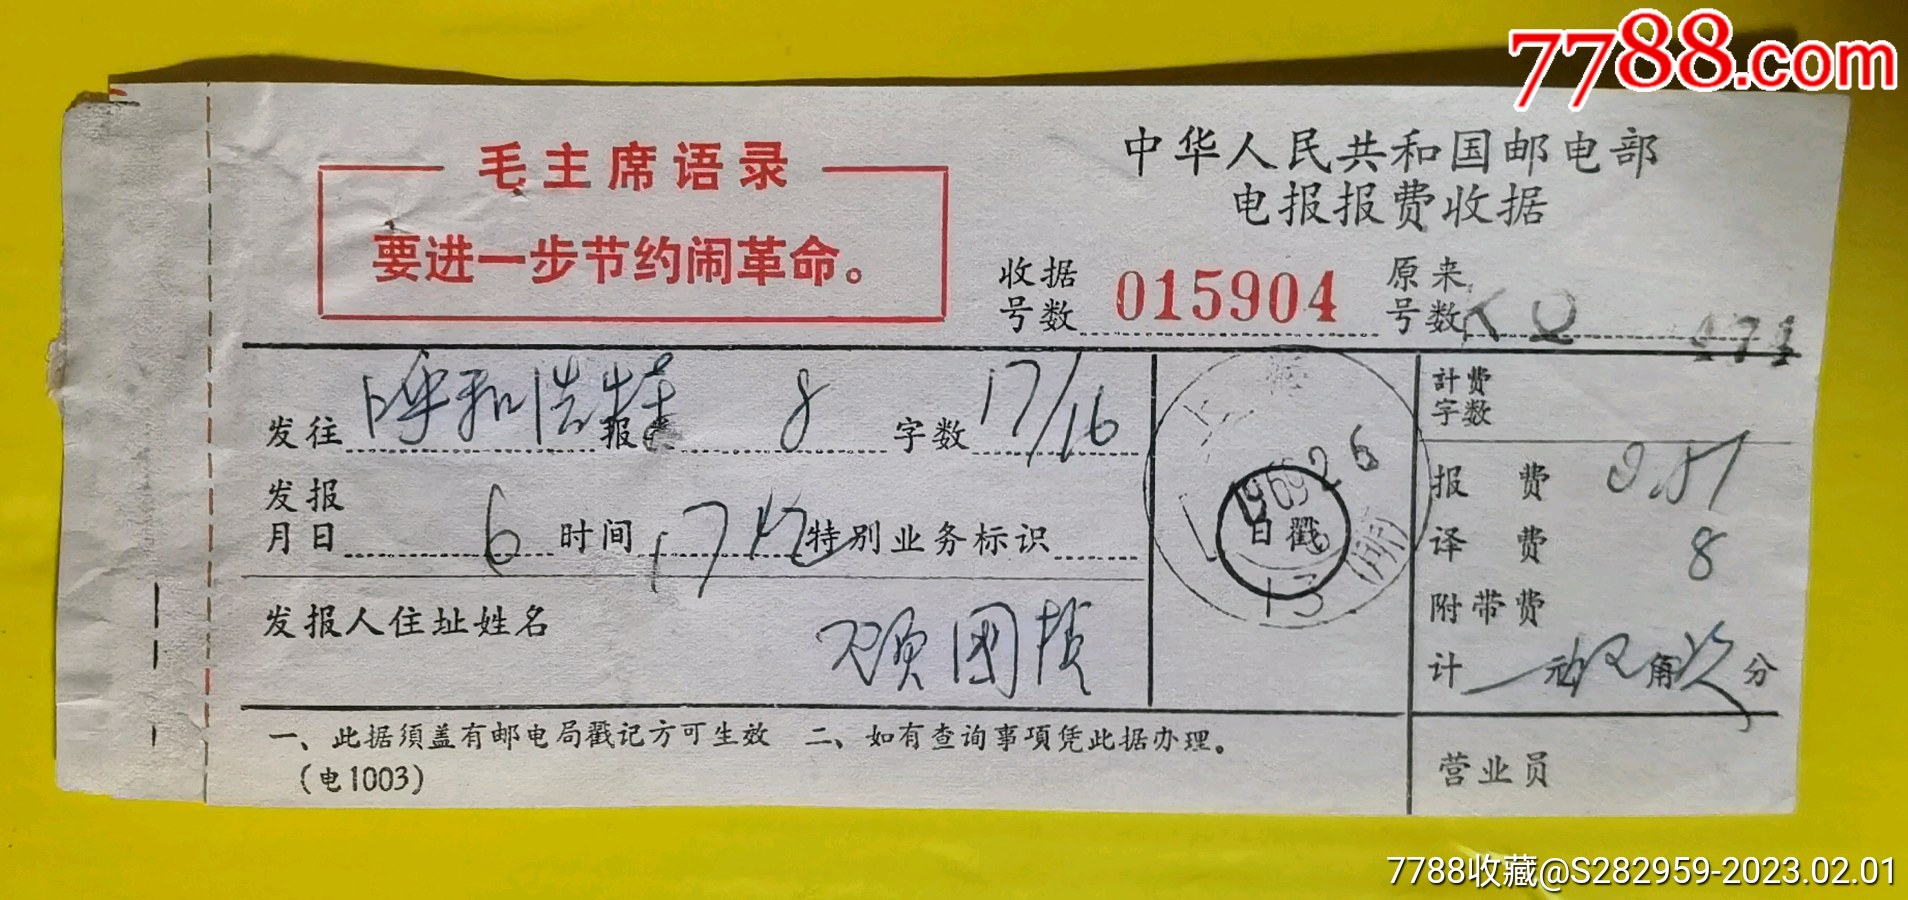 7788.com
毛主席语录
要进一步节约闹革命。
中华人民共和国邮电部
电报报费收据
收据号数 015904 原来号数
发往 呼和浩特 报类 8 字数 17/16
发报月日 6 时间 17 特别业务标识
发报人住址姓名
日戳
1969 2 6
13
計费字数
报费 0.51
译费 8
附带费
计 元 角 分
营业员
一、此据须盖有邮电局戳记方可生效 二、如有查询事项凭此据办理。
(电1003)
7788收藏@S282959-2023.02.01